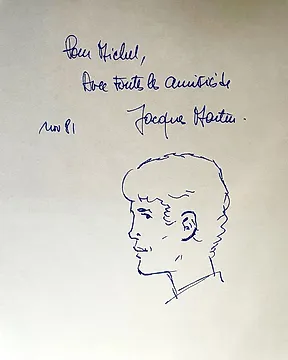 Pour Michel,
Avec toute les amitiés de
Jacques Martin.
nov 81